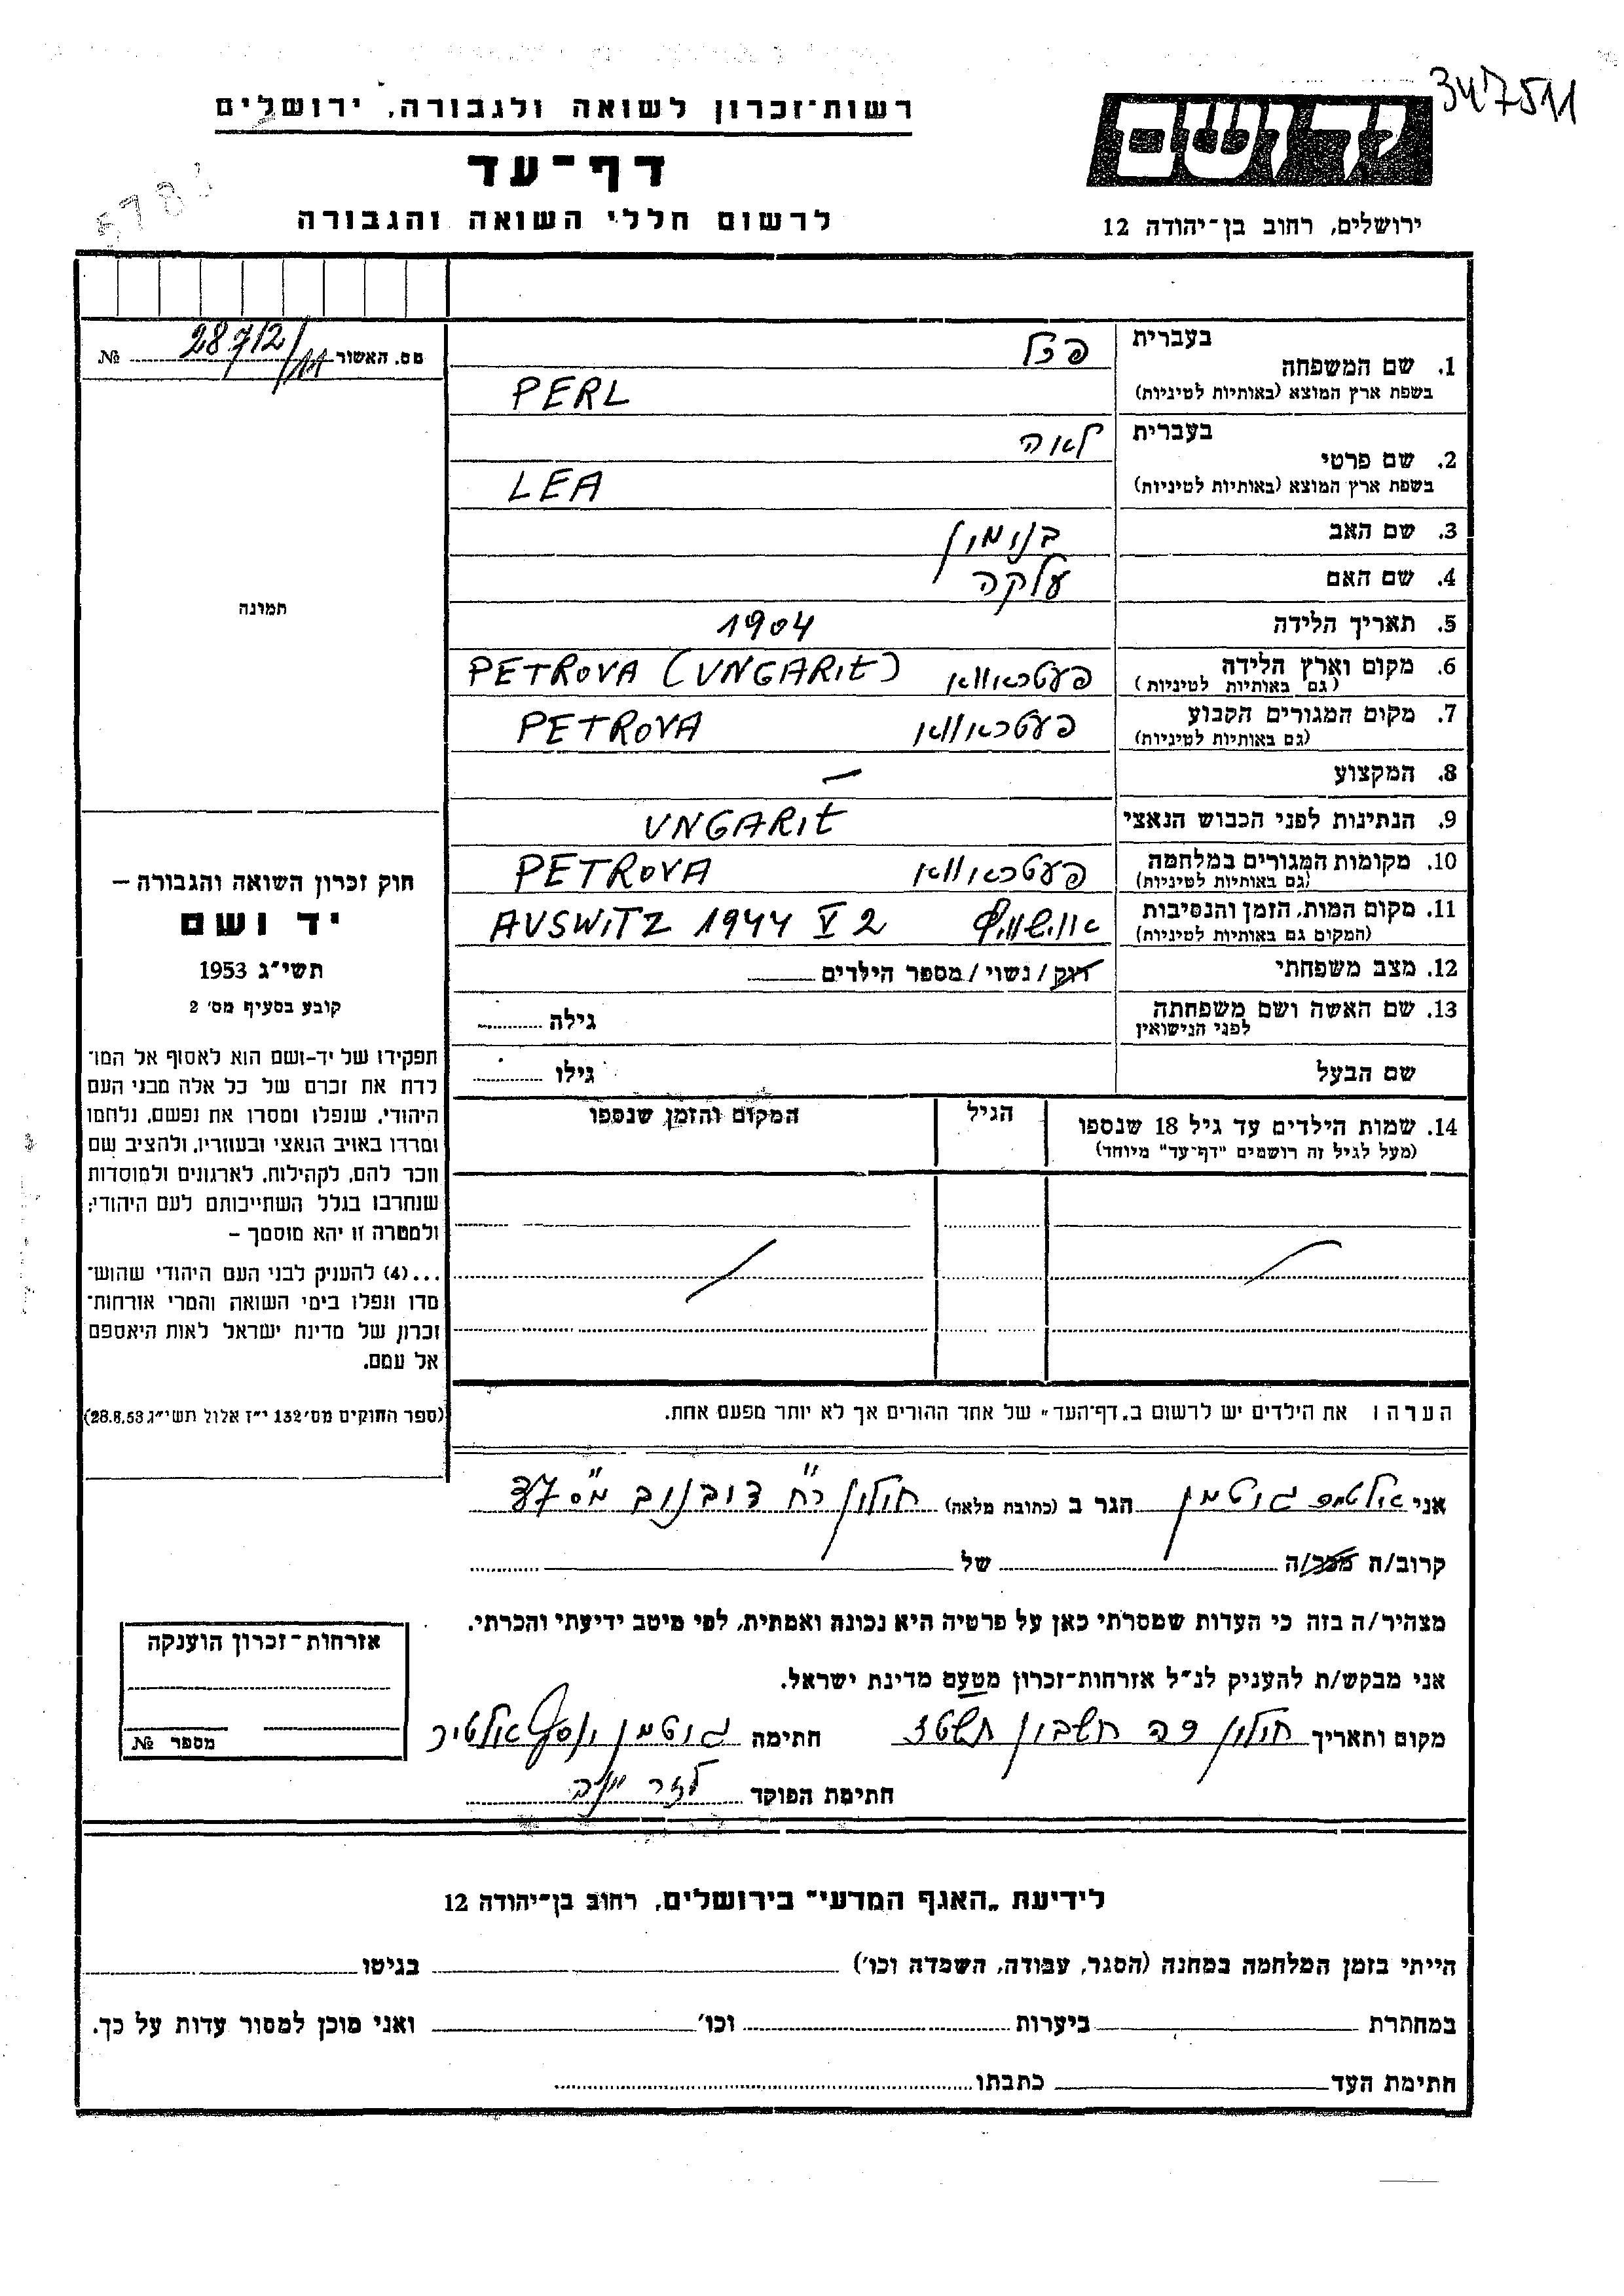 347511
רשות־זכרון לשואה ולגבורה, ירושלים
ידושם
דף־עד
לרשום חללי השואה והגבורה
ירושלים, רחוב בן־יהודה 12
מס. האשור 28712/11 №
בעברית פרל
1. שם המשפחה
בשפת ארץ המוצא (באותיות לטיניות) PERL
בעברית לאה
2. שם פרטי
בשפת ארץ המוצא (באותיות לטיניות) LEA
3. שם האב בנימין
4. שם האם עלקה
5. תאריך הלידה 1904
6. מקום וארץ הלידה פעטראווא PETROVA (UNGARIE)
(גם באותיות לטיניות)
7. מקום המגורים הקבוע פעטראווא PETROVA
(גם באותיות לטיניות)
8. המקצוע —
9. הנתינות לפני הכבוש הנאצי UNGARIE
10. מקומות המגורים במלחמה פעטראווא PETROVA
(גם באותיות לטיניות)
11. מקום המות, הזמן והנסיבות אוישוויץ AUSWITZ 1944 V 2
(המקום גם באותיות לטיניות)
12. מצב משפחתי רוק/נשוי/מספר הילדים
13. שם האשה ושם משפחתה גילה
לפני הנישואין
שם הבעל גילו
14. שמות הילדים עד גיל 18 שנספו הגיל המקום והזמן שנספו
(מעל לגיל זה רושמים "דף־עד" מיוחד)
תמונה
חוק זכרון השואה והגבורה –
יד ושם
תשי"ג 1953
קובע בסעיף מס' 2
תפקידו של יד-ושם הוא לאסוף אל המו־
לדת את זכרם של כל אלה מבני העם
היהודי, שנפלו ומסרו את נפשם, נלחמו
ומרדו באויב הנאצי ובעוזריו, ולהציב שם
וזכר להם, לקהילות, לארגונים ולמוסדות
שנחרבו בגלל השתייכותם לעם היהודי;
ולמטרה זו יהא מוסמך –
...(4) להעניק לבני העם היהודי שהוש־
מדו ונפלו בימי השואה והמרי אזרחות־
זכרון של מדינת ישראל לאות היאספם
אל עמם.
(ספר החוקים מס' 132 י"ז אלול תשי"ג 28.8.53)
הערה ו את הילדים יש לרשום ב„דף־העד" של אחד ההורים אך לא יותר מפעם אחת.
אני גוטמן הגר ב (כתובת מלאה) חולון רח" דובנוב
קרוב/ה מכר/ה של
מצהיר/ה בזה כי העדות שמסרתי כאן על פרטיה היא נכונה ואמתית, לפי מיטב ידיעתי והכרתי.
אני מבקש/ת להעניק לנ"ל אזרחות־זכרון מטעם מדינת ישראל.
מקום ותאריך חולון חשבון חתימה גוטמן
חתימת הפוקד
אזרחות־זכרון הוענקה
מספר №
לידיעת „האגף המדעי" בירושלים, רחוב בן־יהודה 12
הייתי בזמן המלחמה במחנה (הסגר, עבודה, השמדה וכו') בגיטו
במחתרת ביערות וכו' ואני מוכן למסור עדות על כך.
חתימת העד כתבתו